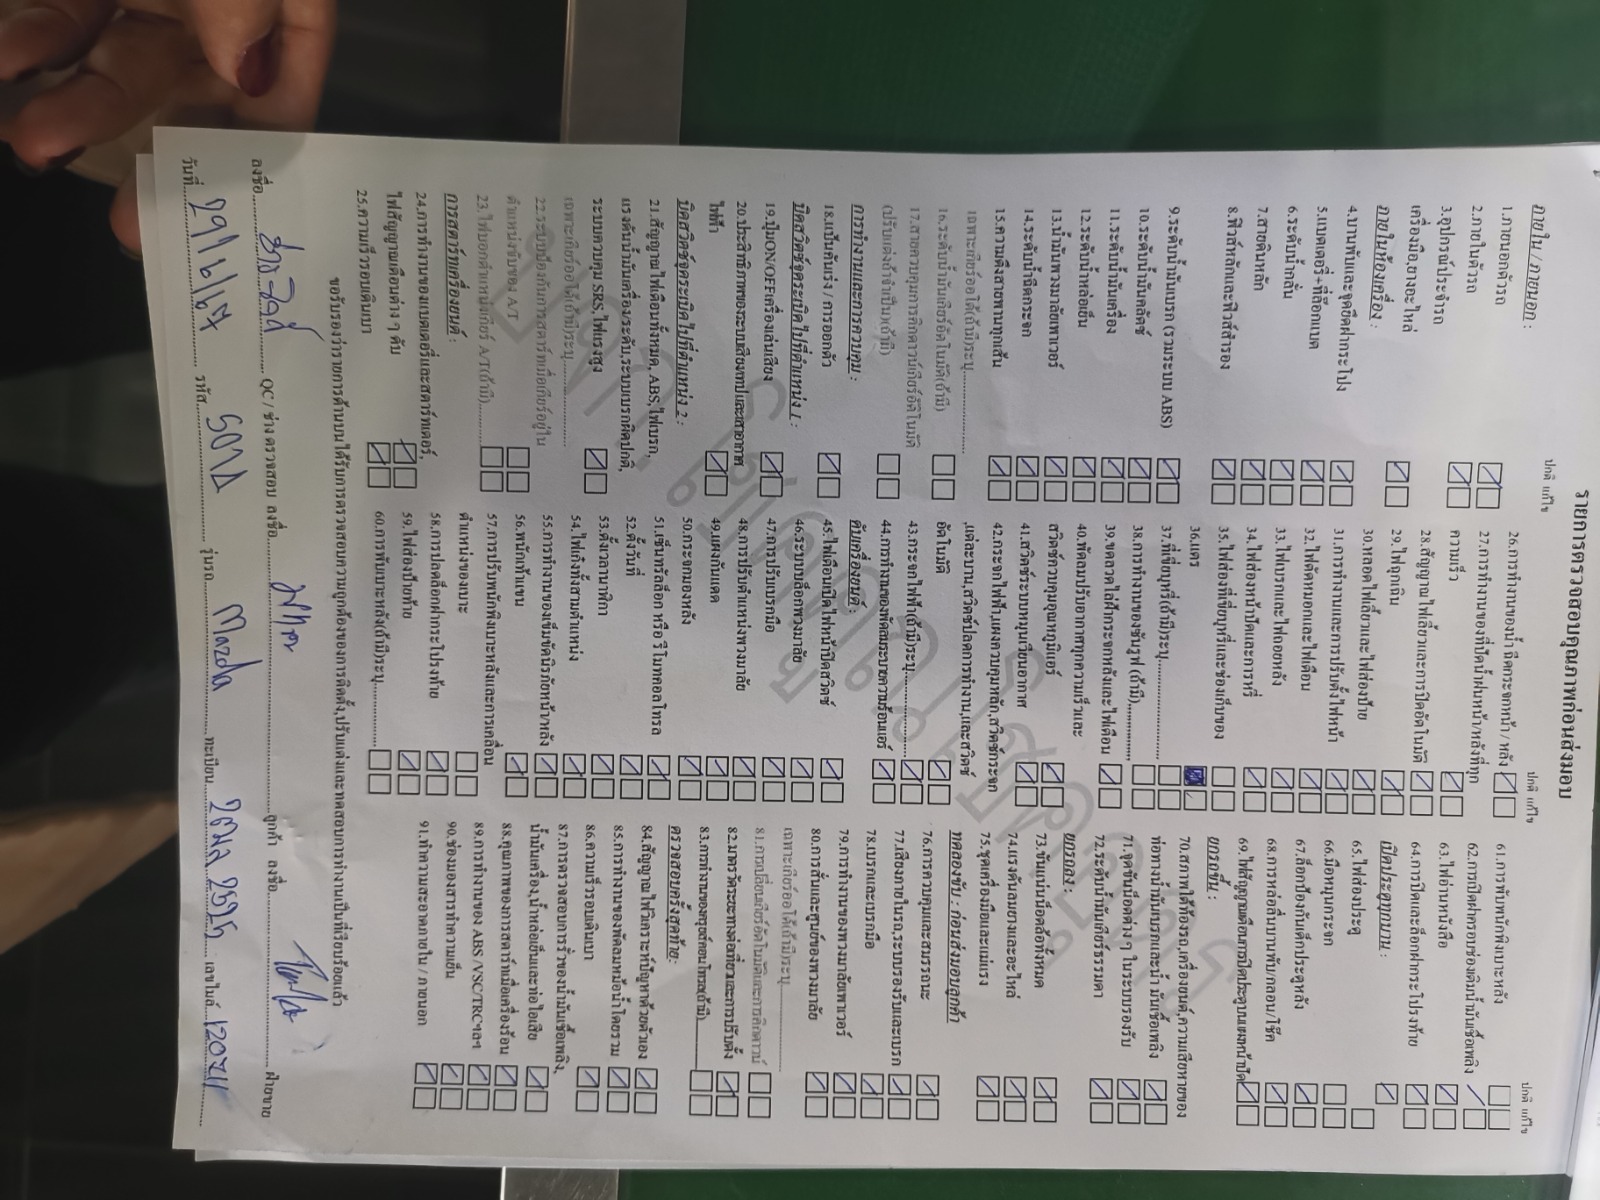 รายการตรวจสอบคุณภาพก่อนส่งมอบ
ปกติ แก้ไข
ภายใน / ภายนอก :
1.ภายนอกตัวรถ
2.ภายในตัวรถ
3.อุปกรณ์ประจำรถ
เครื่องมือ,ยางอะไหล่
ภายในห้องเครื่อง :
4.บานพับและจุดยึดฝากระโปง
5.แบตเตอรี่+ที่ล็อกแบต
6.ระดับน้ำกลั่น
7.สายดินหลัก
8.ฟิวส์หลักและฟิวส์สำรอง
9.ระดับน้ำมันเบรก (รวมระบบ ABS)
10.ระดับน้ำมันคลัตช์
11.ระดับน้ำมันเครื่อง
12.ระดับน้ำหล่อเย็น
13.น้ำมันพวงมาลัยเพาเวอร์
14.ระดับน้ำฉีดกระจก
15.ความตึงสายพานทุกเส้น
เฉพาะเกียร์ออโต้(ถ้ามี)ระบุ
16.ระดับน้ำมันเกียร์อัตโนมัติ(ถ้ามี)
17.สายควบคุมการคิกดาวน์เกียร์อัติโนมัติ
(ปรับแต่งถ้าจำเป็น)(ถ้ามี)
การทำงานและการควบคุม :
18.แป้นคันเร่ง / การออกตัว
บิดสวิตช์จุดระเบิดไปที่ตำแหน่ง 1 :
19.ปุ่มON/OFFเครื่องเล่นเสียง
20.ประสิทธิภาพของระบบเสียงเทปและเสาอากาศ
ไฟฟ้า
บิดสวิตช์จุดระเบิดไปที่ตำแหน่ง 2 :
21.สัญญาณไฟเตือนทั้งหมด, ABS,ไฟเบรก,
แรงดันน้ำมันเครื่อง/ระดับ,ระบบเบรกผิดปกติ,
ระบบควบคุม SRS,ไฟแรงสูง
เฉพาะเกียร์ออโต้(ถ้ามี)ระบุ
22.ระบบป้องกันการสตาร์ทเมื่อเกียร์อยู่ใน
ตำแหน่งขับของ A/T
23.ไฟบอกตำแหน่งเกียร์ A/T(ถ้ามี)
การสตาร์ทเครื่องยนต์ :
24.การทำงานของแบตเตอรี่และสตาร์ทเตอร์,
ไฟสัญญาณเตือนต่าง ๆ ดับ
25.ความเร็วรอบเดินเบา
ปกติ แก้ไข
26.การทำงานของน้ำฉีดกระจกหน้า / หลัง
27.การทำงานของที่ปัดน้ำฝนหน้า/หลังที่ทุก
ความเร็ว
28.สัญญาณไฟเลี้ยวและการปิดอัตโนมัติ
29.ไฟฉุกเฉิน
30.หลอดไฟเลี้ยวและไฟส่องป้าย
31.การทำงานและการปรับตั้งไฟหน้า
32.ไฟตัดหมอกและไฟเตือน
33.ไฟเบรกและไฟถอยหลัง
34.ไฟส่องหน้าปัดและการหรี่
35.ไฟส่องที่เขี่ยบุหรี่และช่องเก็บของ
36.แตร
37.ที่เขี่ยบุหรี่(ถ้ามี)ระบุ
38.การทำงานของซันรูฟ (ถ้ามี)
39.ขดลวดไล่ฝ้ากระจกหลังและไฟเตือน
40.พัดลมปรับอากาศทุกความเร็วและ
สวิตซ์ควบคุมอุณหภูมิแอร์
41.สวิตช์ระบบหมุนเวียนอากาศ
42.กระจกไฟฟ้า,แผงควบคุมหลัก,สวิตช์กระจก
,แต่ละบาน,สวิตช์ปลดการทำงาน,และสวิตช์
อัตโนมัติ
43.กระจกไฟฟ้า(ถ้ามี)ระบุ
44.การทำงานของพัดลมระบายความร้อนแอร์
ดับเครื่องยนต์ :
45.ไฟเตือนเปิดไฟหน้าปิดสวิตซ์
46.ระบบบล็อกพวงมาลัย
47.การปรับเบรกมือ
48.การปรับตำแหน่งพวงมาลัย
49.แผงกันแดด
50.กระจกมองหลัง
51.เซ็นทรัลล็อก หรือ รีโมทคอลโทรล
52.ตั้งวันที่
53.ตั้งเวลานาฬิกา
54.ไฟเก๋งทั้งสามตำแหน่ง
55.การทำงานของเข็มขัดนิรภัยหน้า/หลัง
56.พนักเท้าแขน
57.การปรับพนักพิงเบาะหลังและการเคลื่อน
ตำแหน่งของเบาะ
58.การปลดล็อกฝากระโปรงท้าย
59.ไฟส่องป้ายท้าย
60.การพับเบาะหลัง(ถ้ามี)ระบุ
ปกติ แก้ไข
61.การพับพนักพิงเบาะหลัง
62.การเปิดฝาครอบช่องเติมน้ำมันเชื้อเพลิง
63.ไฟอ่านหนังสือ
64.การปิดและล็อกฝากระโปรงท้าย
เปิดประตูทุกบาน :
65.ไฟส่องประตู
66.มือหมุนกระจก
67.ล็อกป้องกันเด็กประตูหลัง
68.การหล่อลื่นบานพับ/กลอน/โช๊ค
69.ไฟสัญญาณเตือนการปิดประตูบนแผงหน้าปัด
ยกรถขึ้น :
70.สภาพใต้ท้องรถ,เครื่องยนต์,ความเสียหายของ
ท่อทางน้ำมันเบรกและน้ำมันเชื้อเพลิง
71.จุดขันน็อตต่าง ๆ ในระบบรองรับ
72.ระดับน้ำมันเกียร์ธรรมดา
ยกรถลง :
73.ขันแน่นน็อตล้อทั้งหมด
74.แรงดันลมยางและอะไหล่
75.ชุดเครื่องมือและแม่แรง
ทดลองขับ : ก่อนส่งมอบลูกค้า
76.การควบคุมและสมรรถนะ
77.เสียงภายในรถ,ระบบรองรับและเบรก
78.เบรกและเบรกมือ
79.การทำงานของพวงมาลัยเพาเวอร์
80.การสั่นและศูนย์ของพวงมาลัย
เฉพาะเกียร์ออโต้(ถ้ามี)ระบุ
81.การเปลี่ยนเกียร์อัตโนมัติและการคิกดาวน์
82.มาตรวัดระยะทางต่อเที่ยวและการปรับตั้ง
83.การทำงานของครุยส์คอนโทรล(ถ้ามี)
ตรวจสอบครั้งสุดท้าย:
84.สัญญาณไฟวิเคราะห์ปัญหาด้วยตัวเอง
85.การทำงานของพัดลมหม้อน้ำโดยรวม
86.ความเร็วรอบเดินเบา
87.การตรวจสอบการรั่วของน้ำมันเชื้อเพลิง,
น้ำมันเครื่อง,น้ำหล่อเย็นและท่อไอเสีย
88.คุณภาพของการสตาร์ทเมื่อเครื่องร้อน
89.การทำงานของ ABS /VSC/TRCฯลฯ
90.ช่องมองสารทำความเย็น
91.ทำความสะอาดภายใน / ภายนอก
ขอรับรองว่ารายการด้านบนได้รับการตรวจสอบความถูกต้องของการติดตั้ง,ปรับแต่งและทดสอบการทำงานเป็นที่เรียบร้อยแล้ว
ลงชื่อ QC / ช่าง ตรวจสอบ ลงชื่อ ลูกค้า ลงชื่อ ฝ่ายขาย
วันที่ 29/6/67 รหัส รุ่นรถ Mazda ทะเบียน เลขไมล์